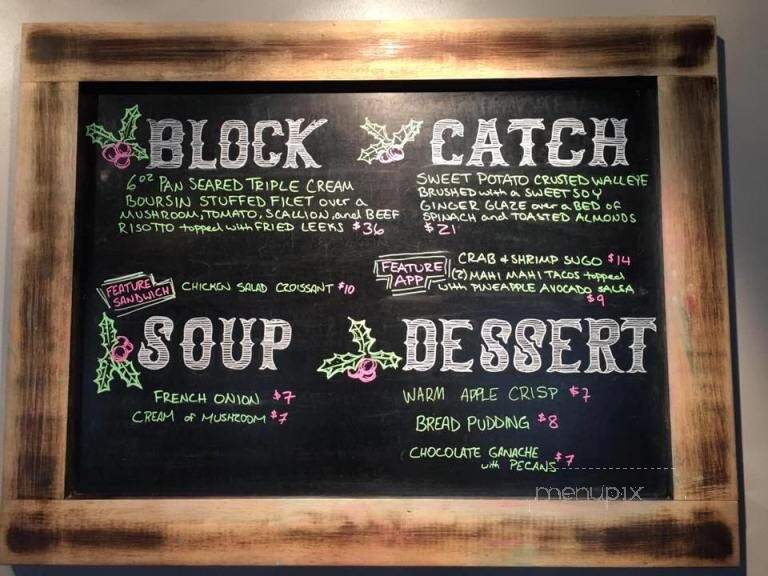 BLOCK
6oz PAN SEARED TRIPLE CREAM
BOURSIN STUFFED FILET over a
MUSHROOM, TOMATO, SCALLION, and BEEF
RISOTTO topped with FRIED LEEKS $36
CATCH
SWEET POTATO CRUSTED WALLEYE
BRUSHED with a SWEET SOY
GINGER GLAZE over a BED of
SPINACH and TOASTED ALMONDS
$21
FEATURE
SANDWICH
CHICKEN SALAD CROISSANT $10
FEATURE
APP
CRAB & SHRIMP SUGO $14
(2) MAHI MAHI TACOS topped
with PINEAPPLE AVOCADO SALSA
$9
SOUP
FRENCH ONION $7
CREAM of MUSHROOM $7
DESSERT
WARM APPLE CRISP $7
BREAD PUDDING $8
CHOCOLATE GANACHE
with PECANS $7
menupix